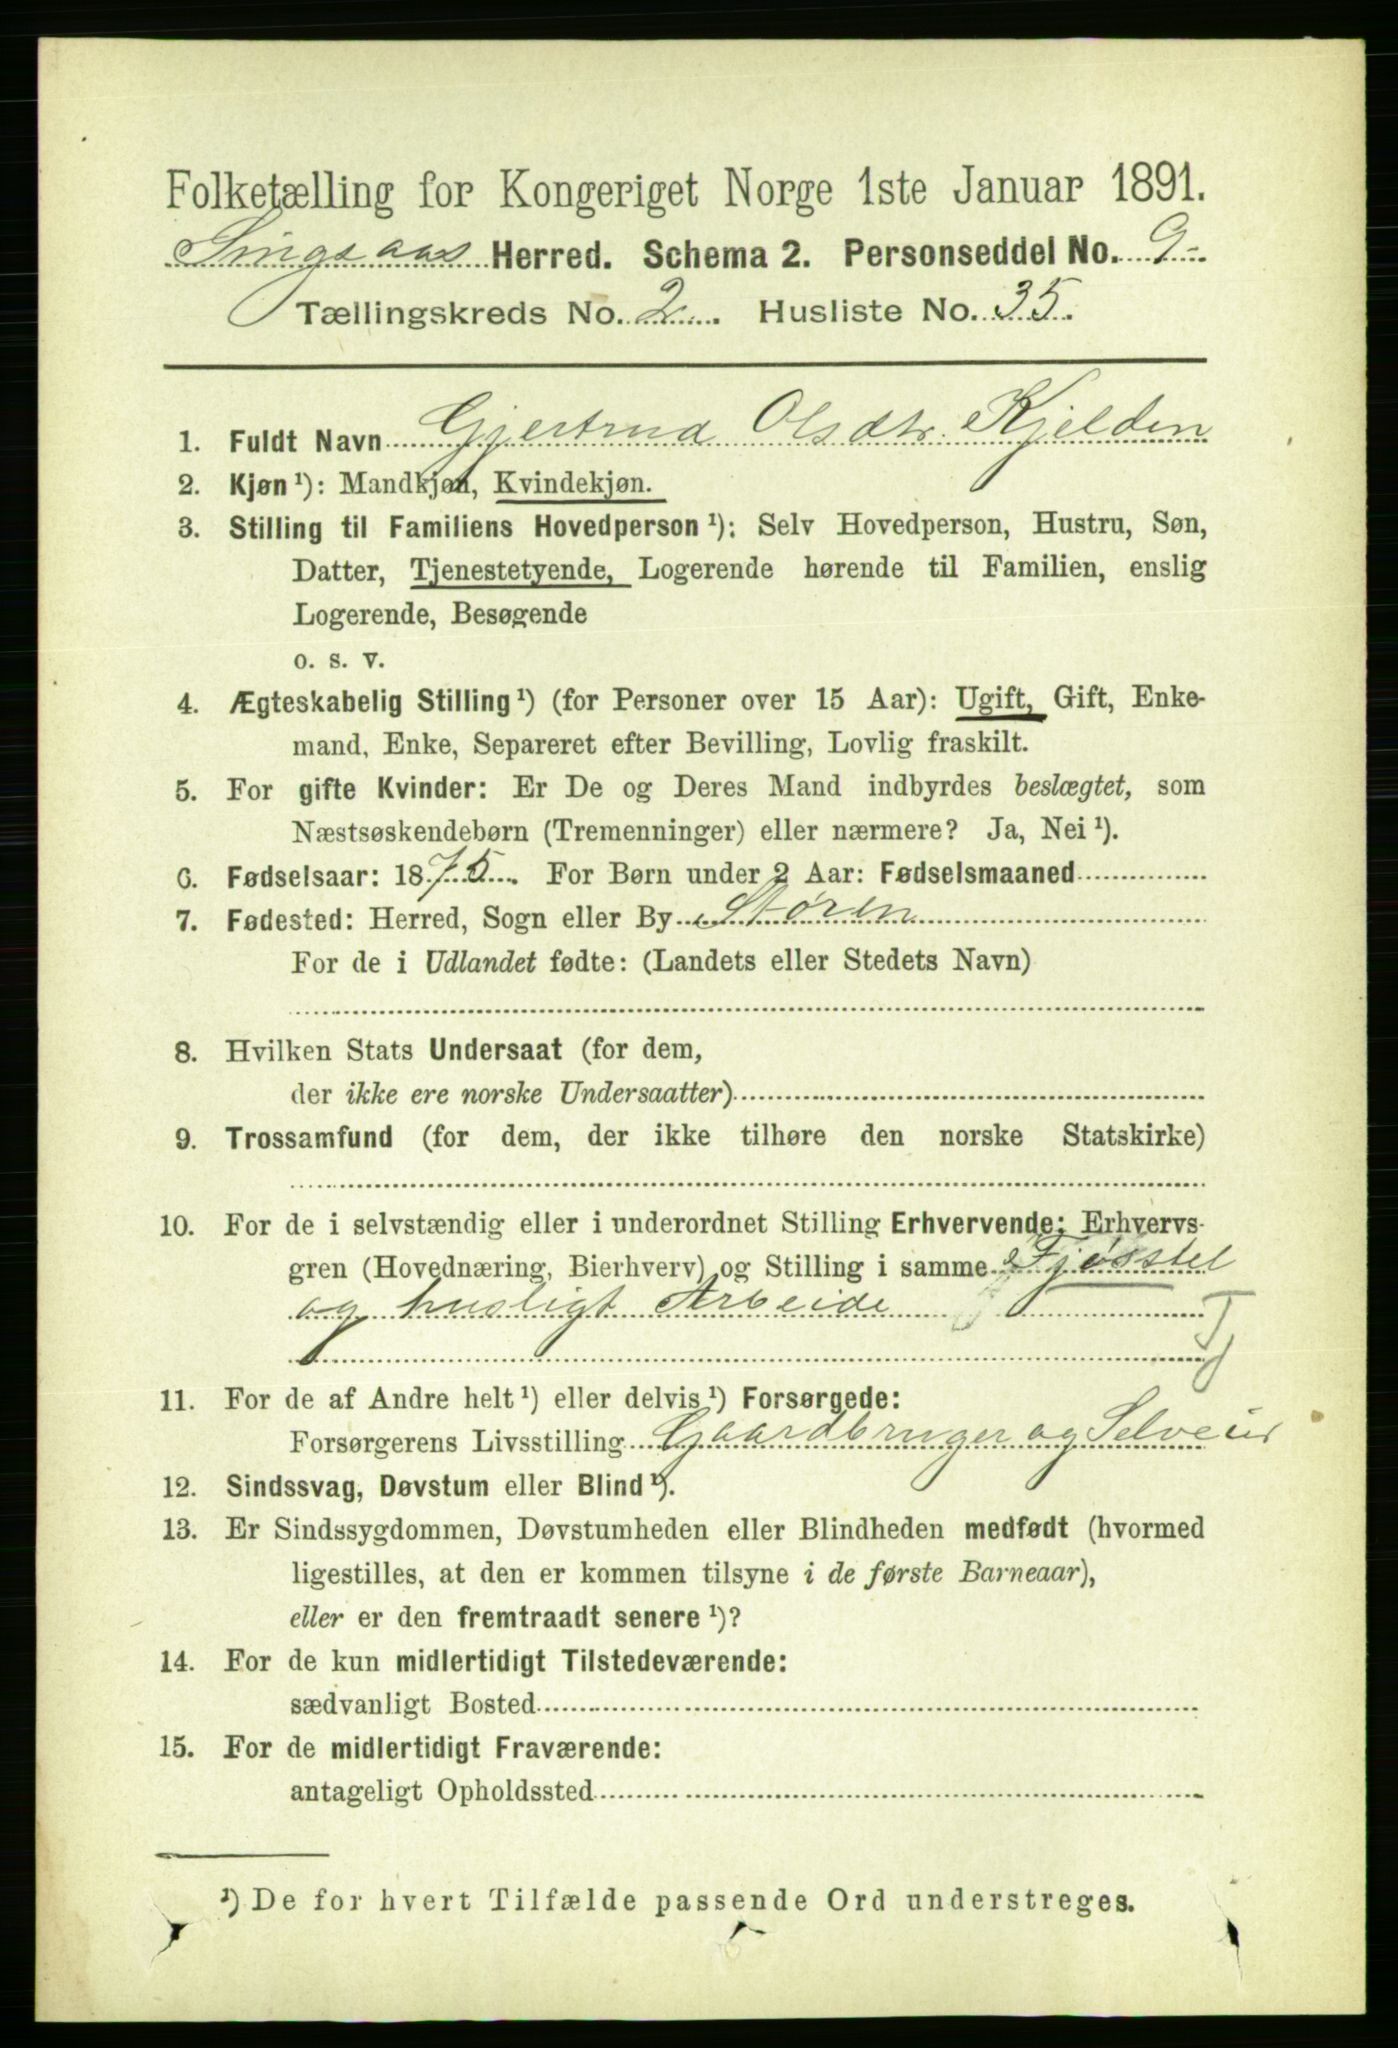 Folketælling for Kongeriget Norge 1ste Januar 1891.
Singsaas Herred. Schema 2. Personseddel No. 9-
Tællingskreds No. 2. Husliste No. 35.
1. Fuldt Navn Gjertrud Olsdtr. Kjelden
2. Kjøn ¹): Mandkjøn, Kvindekjøn.
3. Stilling til Familiens Hovedperson ¹): Selv Hovedperson, Hustru, Søn,
Datter, Tjenestetyende, Logerende hørende til Familien, enslig
Logerende, Besøgende
o. s. v.
4. Ægteskabelig Stilling ¹) (for Personer over 15 Aar): Ugift, Gift, Enke-
mand, Enke, Separeret efter Bevilling, Lovlig fraskilt.
5. For gifte Kvinder: Er De og Deres Mand indbyrdes beslægtet, som
Næstsøskendebørn (Tremenninger) eller nærmere? Ja, Nei ¹).
6. Fødselsaar: 1875. For Børn under 2 Aar: Fødselsmaaned
7. Fødested: Herred, Sogn eller By Støren
For de i Udlandet fødte: (Landets eller Stedets Navn)
8. Hvilken Stats Undersaat (for dem,
der ikke ere norske Undersaatter)
9. Trossamfund (for dem, der ikke tilhøre den norske Statskirke)
10. For de i selvstændig eller i underordnet Stilling Erhvervende: Erhvervs-
gren (Hovednæring, Bierhverv) og Stilling i samme Fjøsstel
og husligt Arbeide
11. For de af Andre helt ¹) eller delvis ¹) Forsørgede:
Forsørgerens Livsstilling Gaardbruger og Selveier
12. Sindssvag, Døvstum eller Blind ¹).
13. Er Sindssygdommen, Døvstumheden eller Blindheden medfødt (hvormed
ligestilles, at den er kommen tilsyne i de første Barneaar),
eller er den fremtraadt senere ¹)?
14. For de kun midlertidigt Tilstedeværende:
sædvanligt Bosted
15. For de midlertidigt Fraværende:
antageligt Opholdssted
¹) De for hvert Tilfælde passende Ord understreges.